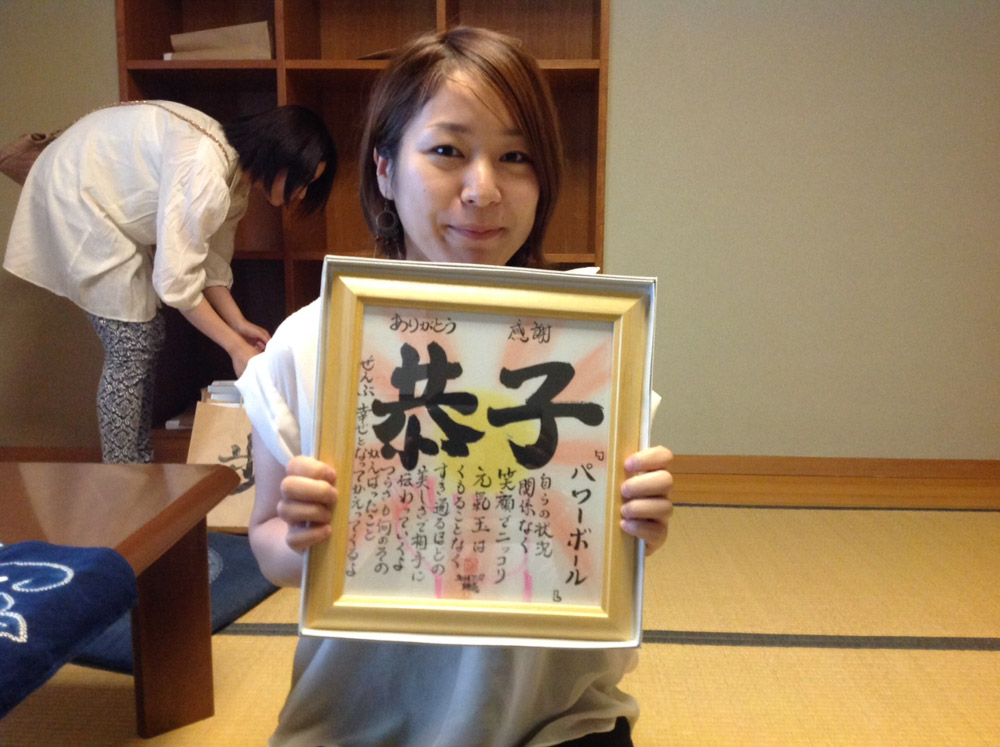 ありがとう
感謝
恭子
「パワーボール」
自らの状況
関係なく
笑顔でニッコリ
元氣玉は
くもることなく
すき通るほどの
美しさで相手に
伝わっていくよ
つらさも何のその
がんばったこと
ぜんぶ幸せとなってかえってくるよ